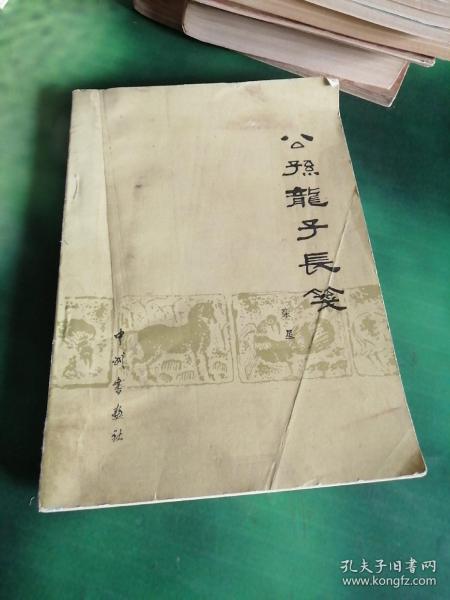 公孫龍子長箋
栾星
中州書画社
孔夫子旧书网
www.kongfz.com